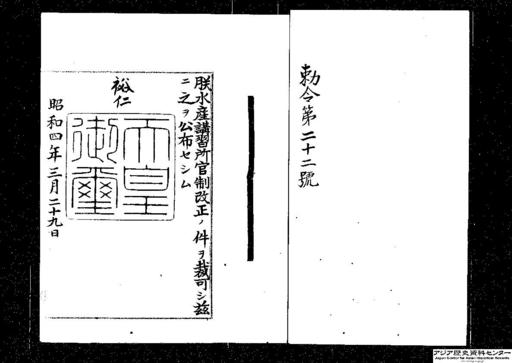 勅令第二十二號
朕水産講習所官制改正ノ件ヲ裁可シ茲
ニ之ヲ公布セシム
裕仁
天皇
御璽
昭和四年三月二十九日
アジア歴史資料センター
Japan Center for Asian Historical Records